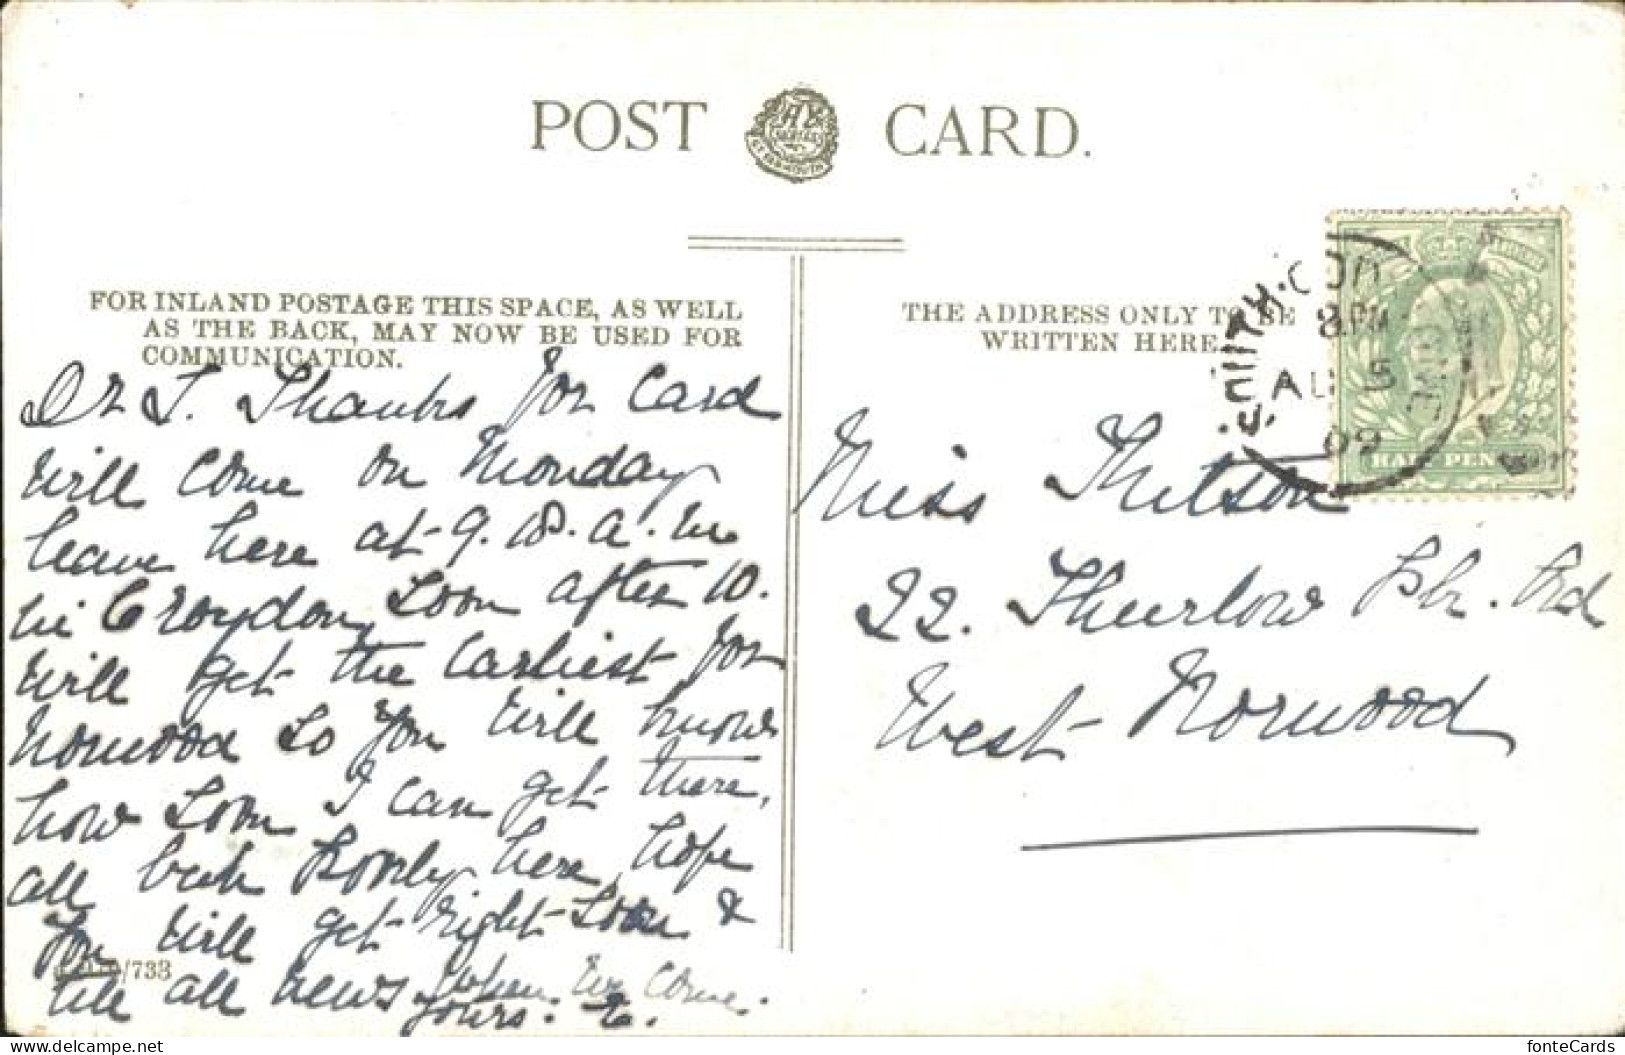 POST CARD.
FOR INLAND POSTAGE THIS SPACE, AS WELL
AS THE BACK, MAY NOW BE USED FOR
COMMUNICATION.
THE ADDRESS ONLY TO BE
WRITTEN HERE.
8 PM
AU 5
09
HALF PEN
Dr T. Thanks for Card
will come on Monday
leave here at 9.18. a.m
in Croydon soon after 10.
will get the earliest for
Norwood so you will know
how soon I can get there,
all here, hope
you will get right soon &
tell all news when we come.
yours. E.
Miss
22. Thurlow Rd
West Norwood
/733
fonteCards